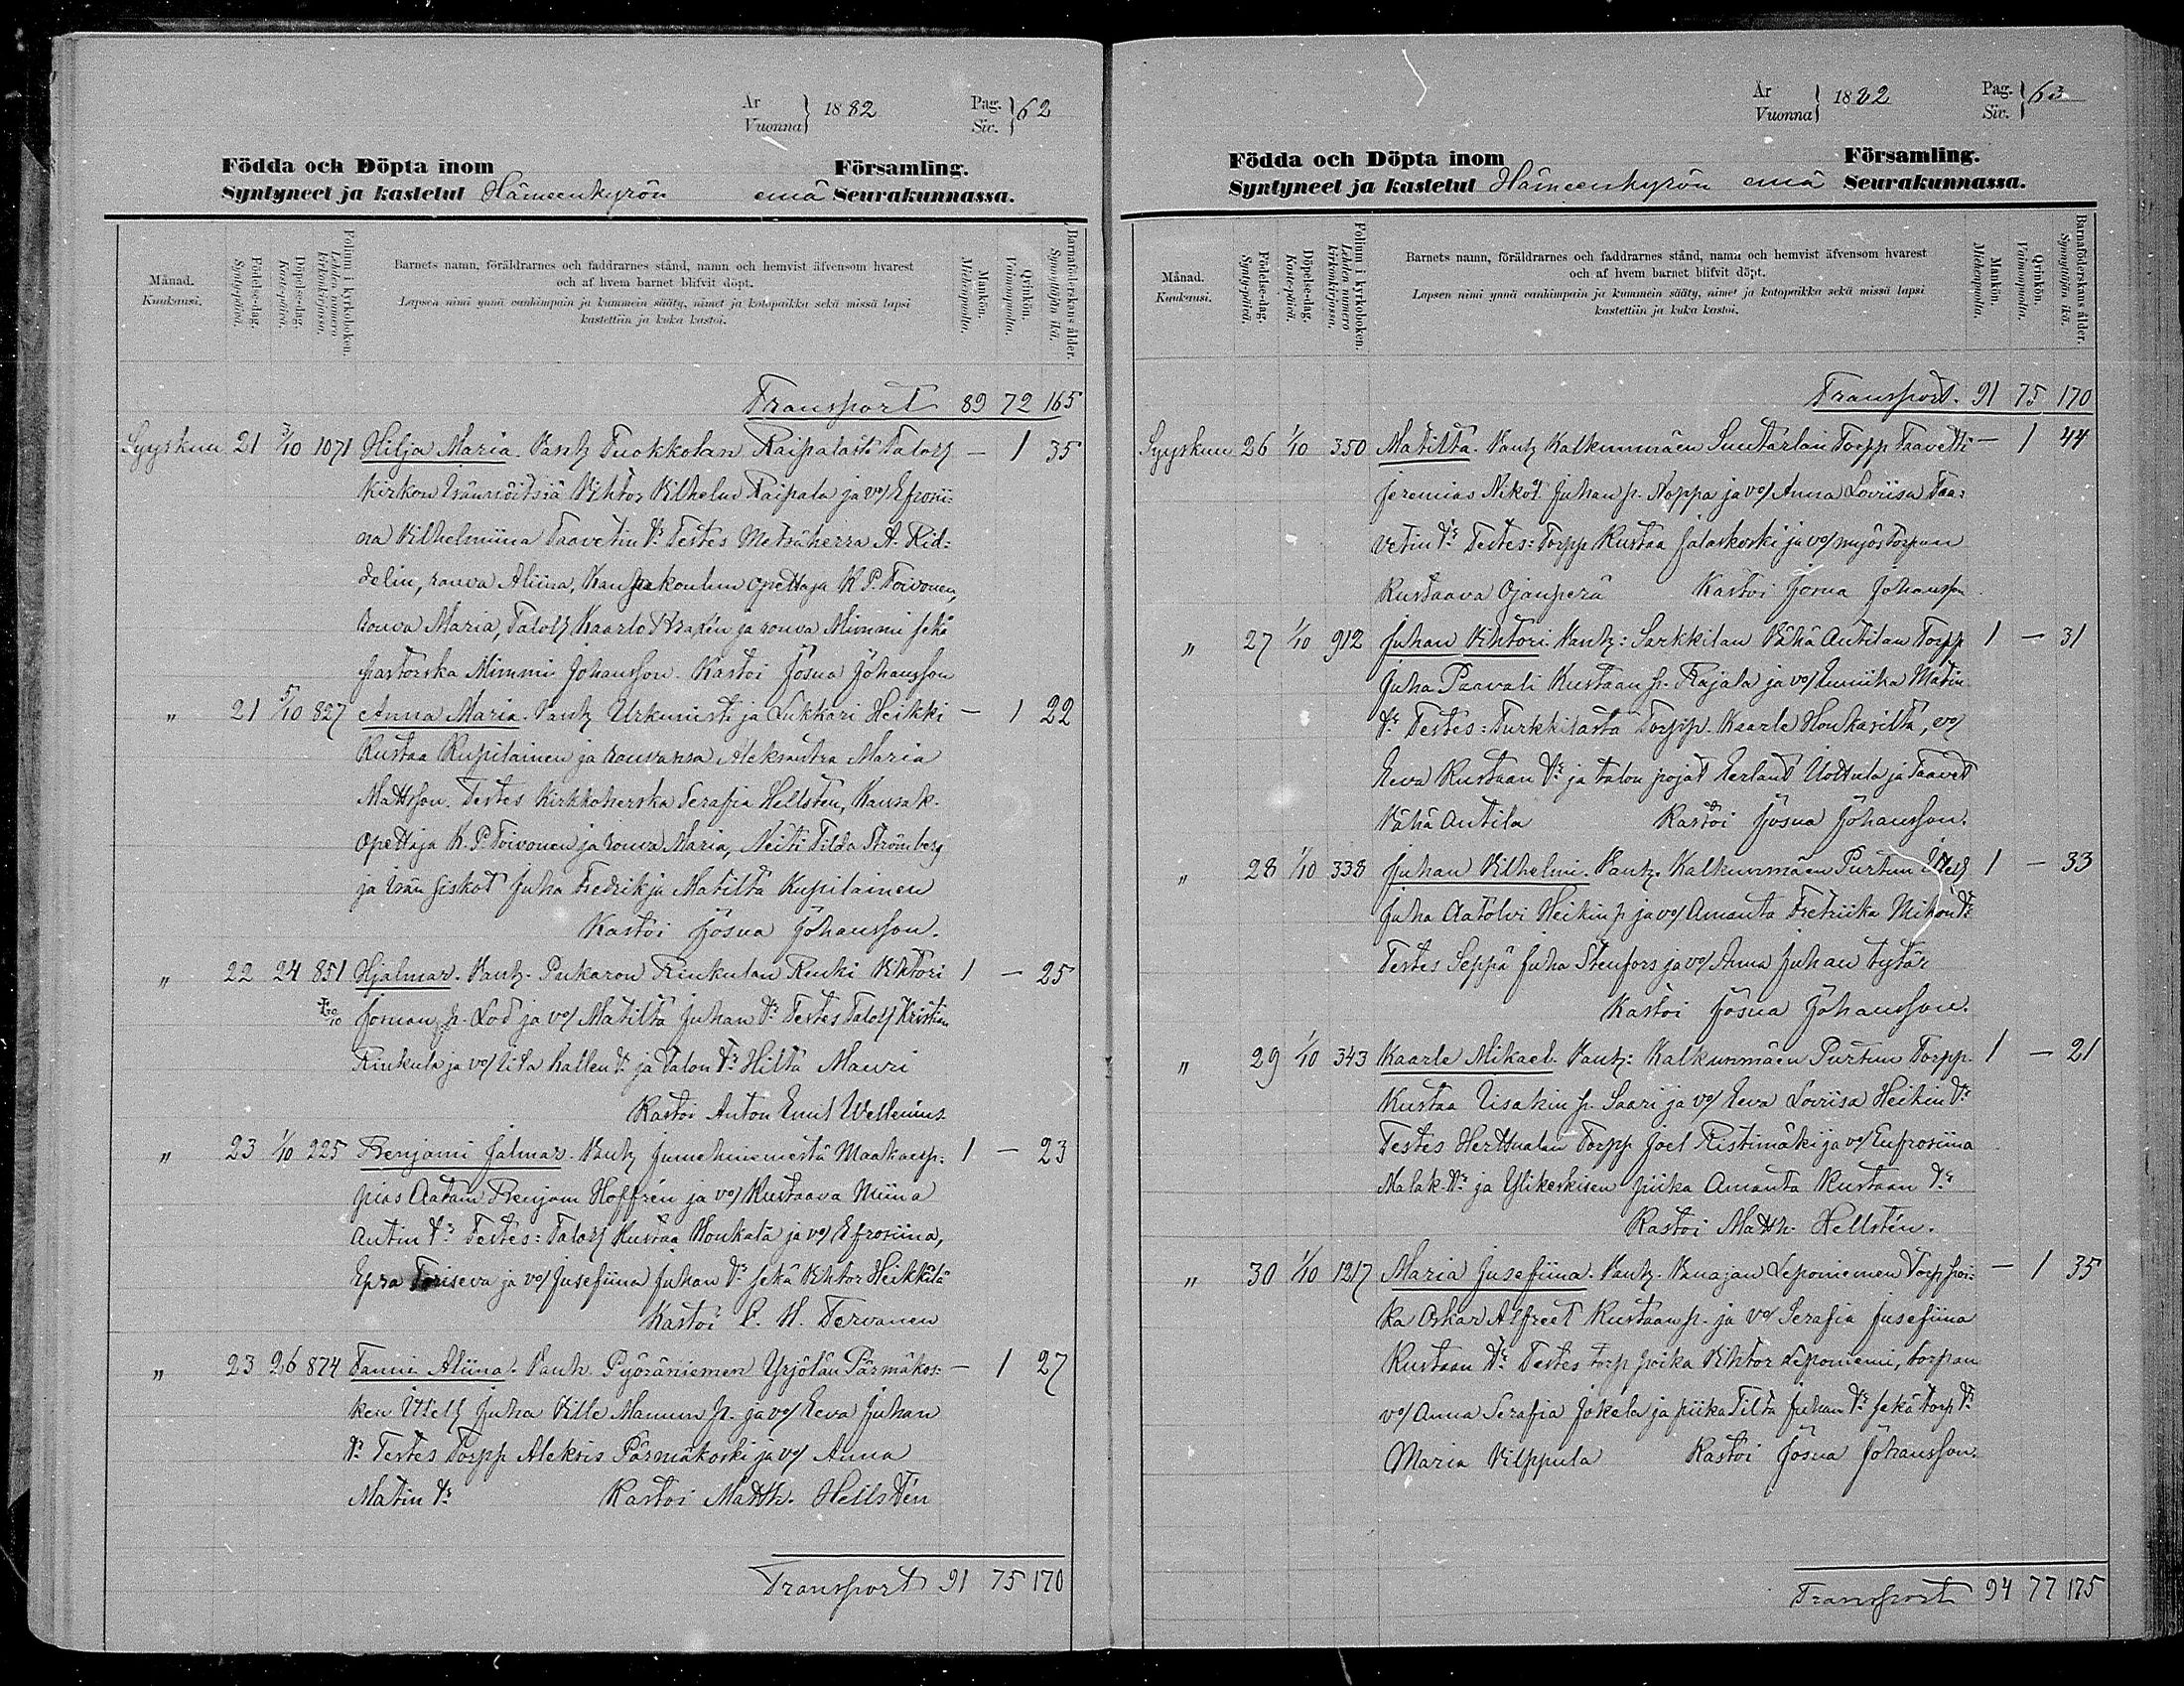 År Vuonna } 1882 Pag. Siv. } 62
Födda och Döpta inom Församling.
Syntyneet ja kastetut Hämeenkyrön emä Seurakunnassa.
Månad. Kuukausi.
Födelse-dag. Syntypäivä.
Döpelse-dag. Kastepäivä.
Folium i kyrkoboken. Lehden numero kirkonkirjassa.
Barnets namn, föräldrarnes och faddrarnes stånd, namn och hemvist äfvensom hvarest
och af hvem barnet blifvit döpt.
Lapsen nimi ynnä vanhimpain ja kummein sääty, nimet ja kotopaikka sekä missä lapsi
kastettiin ja kuka kastoi.
Mankön. Miehenpuolia.
Qvinkön. Vaimonpuolia.
Barnaföderskans ålder. Synnyttäjän ikä.
Transport 89 72 165
Syyskuu 21 3/10 1071 Hilja Maria. Vanh Tuokkolan Raipalasta Taloll — 1 35
Kirkon Isännöitsiä Vihtor Vilhelm Raipala ja vo/ Efrosii:
na Vilhelmiina Taavetin tr Testes Metsäherra A. Rid:
delin, rouva Aliina, Kansakoulun opettaja K. P. Toivonen,
rouva Maria, Taloll Kaarlo Fraxén ja rouva Mimmi sekä
pastorska Mimmi Johansson. Kastoi Josua Johansson
" 21 5/10 827 Anna Maria. Vanh Urkuristi ja Lukkari Heikki — 1 22
Kustaa Kupilainen ja rouvansa Aleksantra Maria
Mattsson. Testes Kirkkoherska Serafia Hellstén, Kansak.
opettaja K. P. Toivonen ja rouva Maria, Neiti Tilda Strömberg
ja Isän siskot Juha Fredrik ja Matilta Kupilainen
Kastoi Josua Johansson.
" 22 24 851 Hjalmar. Vanh. Pukaron Rinkulan Renki Vihtori 1 — 25
Josuan p. Lod ja vo/ Matilta Juhan tr Testes Taloll Kristian
Rinkula ja vo/ Iita Kallen tr ja Talon tr Hilta Mauri
Kastoi Anton Emil Wellenius
" 23 1/10 225 Benjami Jalmar. Vanh Jumeheniemestä Maakaup: 1 — 23
pias Aatam Benjam Hoffrén ja vo/ Kustaava Miina
Antin tr Testes: Taloll Kustaa Honkala ja vo/ Efrosiina,
Epra Toriseva ja vo/ Jusefiina Juhan tr sekä Vihtor Heikkilä
Kastoi P. H. Tervanen
" 23 26 874 Fanni Aliina. Vanh. Pyöräniemen Yrjölän Pärmäkos: — 1 27
ken Ittell Juha Ville Manuun p. ja vo/ Eeva Juhan
tr Testes Torpp Aleksis Pärmäkoski ja vo/ Anna
Matin tr Kastoi Matth. Hellstén
Transport 91 75 170
År Vuonna } 1882 Pag. Siv. } 63
Födda och Döpta inom Församling.
Syntyneet ja kastetut Hämeenkyrön emä Seurakunnassa.
Månad. Kuukausi.
Födelse-dag. Syntypäivä.
Döpelse-dag. Kastepäivä.
Folium i kyrkoboken. Lehden numero kirkonkirjassa.
Barnets namn, föräldrarnes och faddrarnes stånd, namn och hemvist äfvensom hvarest
och af hvem barnet blifvit döpt.
Lapsen nimi ynnä vanhimpain ja kummein sääty, nimet ja kotopaikka sekä missä lapsi
kastettiin ja kuka kastoi.
Mankön. Miehenpuolia.
Qvinkön. Vaimonpuolia.
Barnaföderskans ålder. Synnyttäjän ikä.
Transport. 91 75 170
Syyskuu 26 1/10 350 Matilta. Vanh Kalkunmäen Suutarlan Torpp Taavetti — 1 44
Jeremias Nikot Juhan p. Noppa ja vo/ Anna Loviisa Taa:
vetin tr Testes: Torpp Kustaa Jalaskoski ja vo/ myös Torpan
Kustaava Ojanperä Kastoi Josua Johansson
" 27 1/10 912 Juhan Vihtori. Vanh: Sarkkilan Vähä Antilan Torpp 1 — 31
Juha Paavali Kustaan p. Rajala ja vo/ Amiika Matin
tr Testes: Turkkilasta Torpp. Kaarle Honkasilta, vo/
Eeva Kustaan tr ja talon pojat Eerland Uottula ja Taavet
Vähä Antila Kastoi Josua Johansson.
" 28 1/10 338 Juhan Vilhelmi. Vanh. Kalkunmäen Purtun Ittell 1 — 33
Juha Aatolvi Heikin p ja vo/ Amanta Fretriika Mikon tr
Testes Seppä Juha Stenfors ja vo/ Anna Juhan tytär
Kastoi Josua Johansson.
" 29 1/10 343 Kaarle Mikael. Vanh: Kalkunmäen Purtun Torpp. 1 — 21
Kustaa Iisakin p. Saari ja vo/ Eeva Loviisa Heikin tr
Testes Herttualan Torpp Joel Ristimäki ja vo/ Eufrosiina
Malak. tr ja Ylikeskisen piika Amanta Kustaan tr
Kastoi Matth. Hellstén.
" 30 1/10 1217 Maria Jusefiina. Vanh. Vanajan Leponiemen Torp poi: — 1 35
ka Oskar Alfreet Kustaan p. ja vo/ Serafia Jusefiina
Kustaan tr Testes torp poika Vihtor Leponiemi, torpan
vo/ Anna Serafia Jokela ja piika Tilta Juhan tr sekä torp tr
Maria Vilppula Kastoi Josua Johansson.
Transport 94 77 175